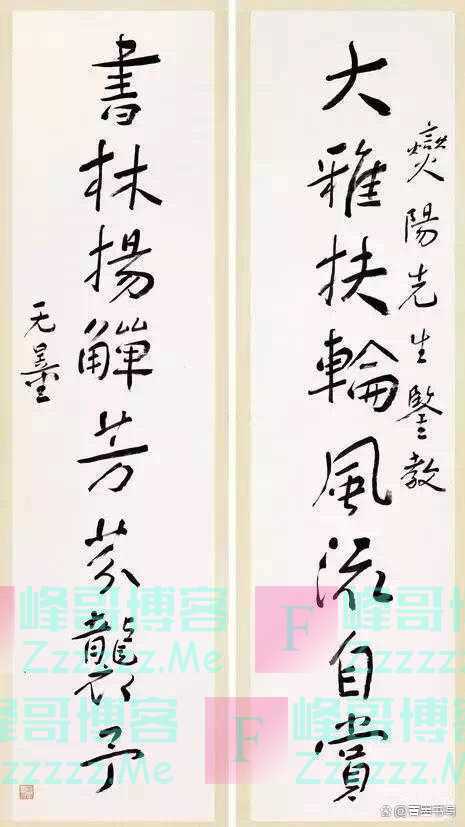 燮陽先生鑒教
大雅扶輪風流自賞
書林揚觶芳芬襲予
无量
峰哥博客
Zzzzzz.Me
F
峰哥博客
Zzzzz
峰哥博客
Zzzzzz.Me
F
峰哥博客
Zzzzz